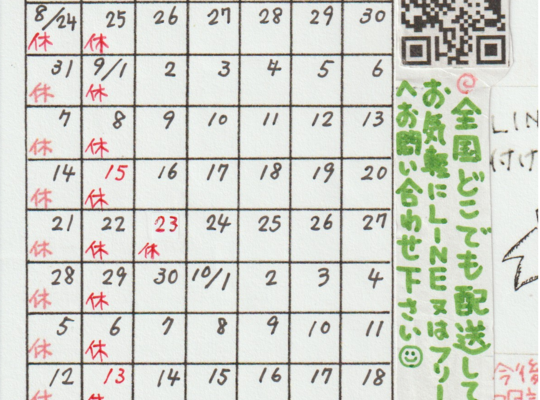 8/24 25 26 27 28 29 30
休 休
31 9/1 2 3 4 5 6
休 休
7 8 9 10 11 12 13
休 休
14 15 16 17 18 19 20
休 休
21 22 23 24 25 26 27
休 休 休
28 29 30 10/1 2 3 4
休 休
5 6 7 8 9 10 11
休 休
12 13 14 15 16 17 18
休 休
全国どこでも配送して
お気軽にLINE又はフリー
へお問い合わせ下さい
LIN
付け
今後